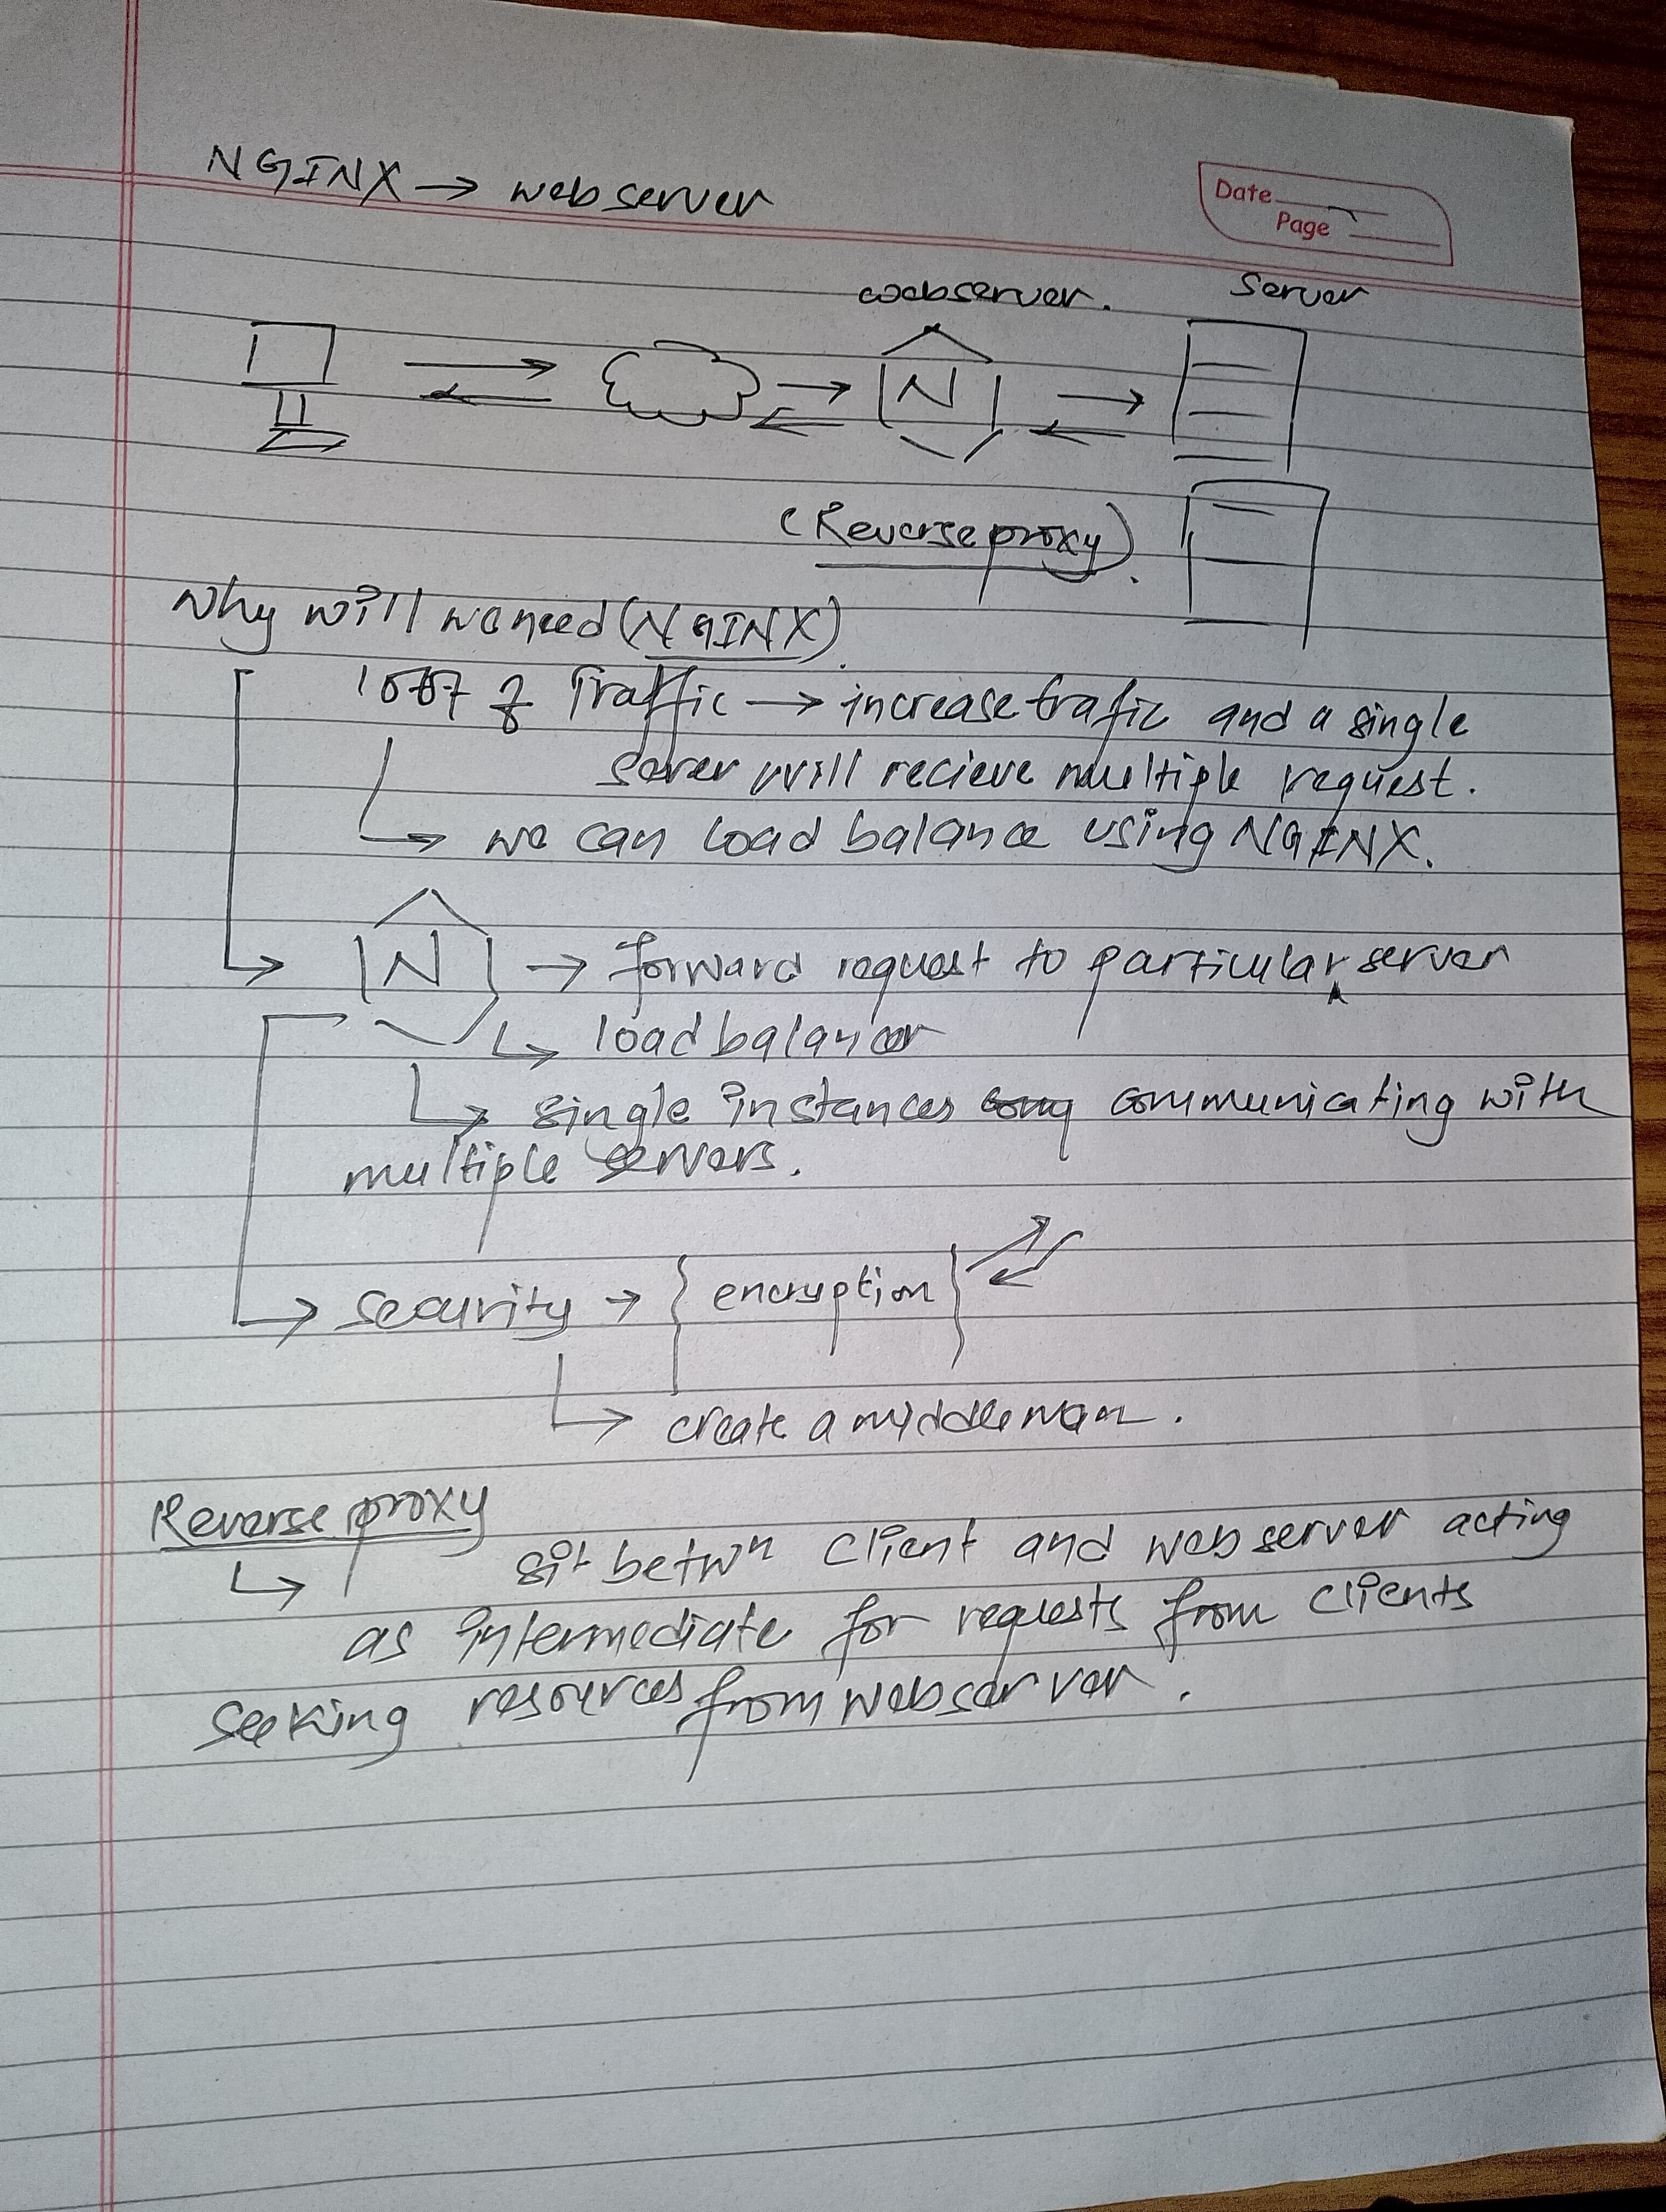 NGINX → webserver
Date
Page
webserver. Server
N
(Reverse proxy).
Why will we need (NGINX).
of Traffic → increase trafic and a single
Server will recieve multiple request.
↳ we can load balance using NGINX.
→ N → forward request to particular server
↳ load balancer
↳ single instances communicating with
multiple servers.
→ security → { encryption }
↳ create a middle man.
Reverse proxy
↳ sit betwn client and webserver acting
as intermediate for requests from clients
seeking resources from webserver.